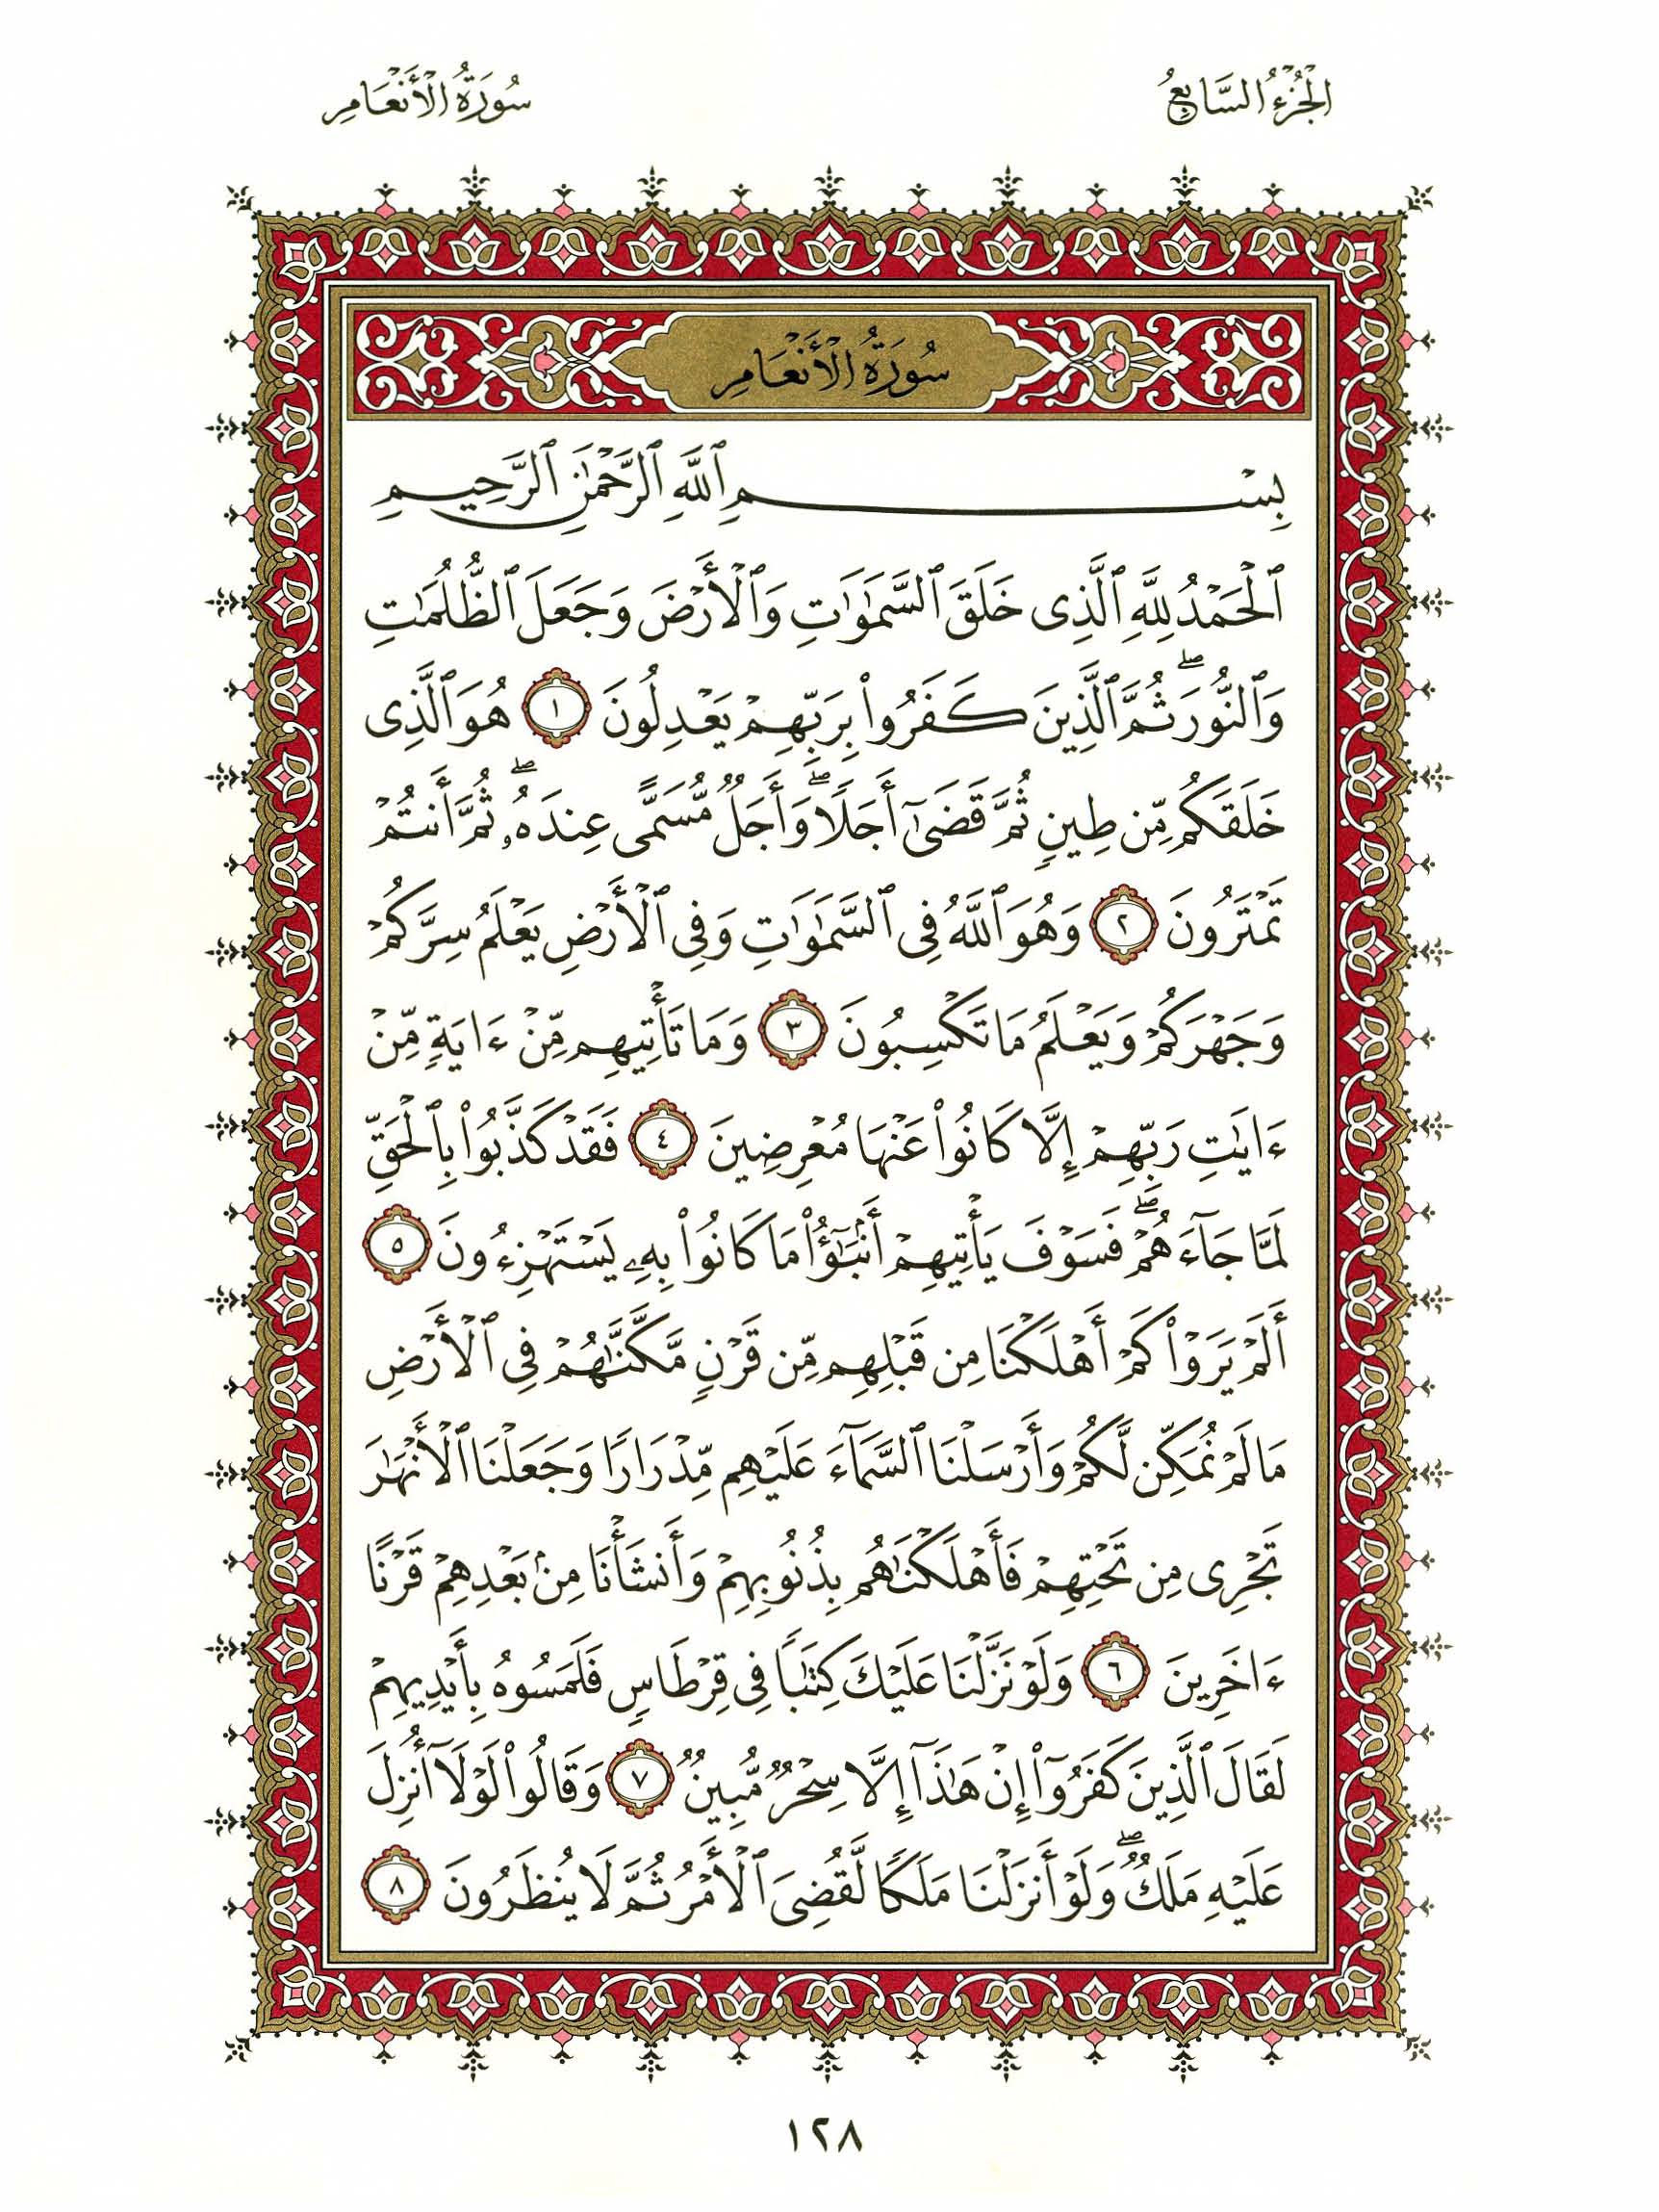 الجُزْءُ السَّابِعُ
سُورَةُ الأَنْعَامِ
سُورَةُ الأَنْعَامِ
بِسْمِ ٱللَّهِ ٱلرَّحْمَٰنِ ٱلرَّحِيمِ
ٱلْحَمْدُ لِلَّهِ ٱلَّذِى خَلَقَ ٱلسَّمَٰوَٰتِ وَٱلْأَرْضَ وَجَعَلَ ٱلظُّلُمَٰتِ
وَٱلنُّورَ ۖ ثُمَّ ٱلَّذِينَ كَفَرُوا۟ بِرَبِّهِمْ يَعْدِلُونَ ١ هُوَ ٱلَّذِى
خَلَقَكُم مِّن طِينٍ ثُمَّ قَضَىٰٓ أَجَلًا ۖ وَأَجَلٌ مُّسَمًّى عِندَهُۥ ۖ ثُمَّ أَنتُمْ
تَمْتَرُونَ ٢ وَهُوَ ٱللَّهُ فِى ٱلسَّمَٰوَٰتِ وَفِى ٱلْأَرْضِ يَعْلَمُ سِرَّكُمْ
وَجَهْرَكُمْ وَيَعْلَمُ مَا تَكْسِبُونَ ٣ وَمَا تَأْتِيهِم مِّنْ ءَايَةٍ مِّنْ
ءَايَٰتِ رَبِّهِمْ إِلَّا كَانُوا۟ عَنْهَا مُعْرِضِينَ ٤ فَقَدْ كَذَّبُوا۟ بِٱلْحَقِّ
لَمَّا جَآءَهُمْ ۖ فَسَوْفَ يَأْتِيهِمْ أَنۢبَٰٓؤُا۟ مَا كَانُوا۟ بِهِۦ يَسْتَهْزِءُونَ ٥
أَلَمْ يَرَوْا۟ كَمْ أَهْلَكْنَا مِن قَبْلِهِم مِّن قَرْنٍ مَّكَّنَّٰهُمْ فِى ٱلْأَرْضِ
مَا لَمْ نُمَكِّن لَّكُمْ وَأَرْسَلْنَا ٱلسَّمَآءَ عَلَيْهِم مِّدْرَارًا وَجَعَلْنَا ٱلْأَنْهَٰرَ
تَجْرِى مِن تَحْتِهِمْ فَأَهْلَكْنَٰهُم بِذُنُوبِهِمْ وَأَنشَأْنَا مِنۢ بَعْدِهِمْ قَرْنًا
ءَاخَرِينَ ٦ وَلَوْ نَزَّلْنَا عَلَيْكَ كِتَٰبًا فِى قِرْطَاسٍ فَلَمَسُوهُ بِأَيْدِيهِمْ
لَقَالَ ٱلَّذِينَ كَفَرُوٓا۟ إِنْ هَٰذَآ إِلَّا سِحْرٌ مُّبِينٌ ٧ وَقَالُوا۟ لَوْلَآ أُنزِلَ
عَلَيْهِ مَلَكٌ ۖ وَلَوْ أَنزَلْنَا مَلَكًا لَّقُضِىَ ٱلْأَمْرُ ثُمَّ لَا يُنظَرُونَ ٨
١٢٨